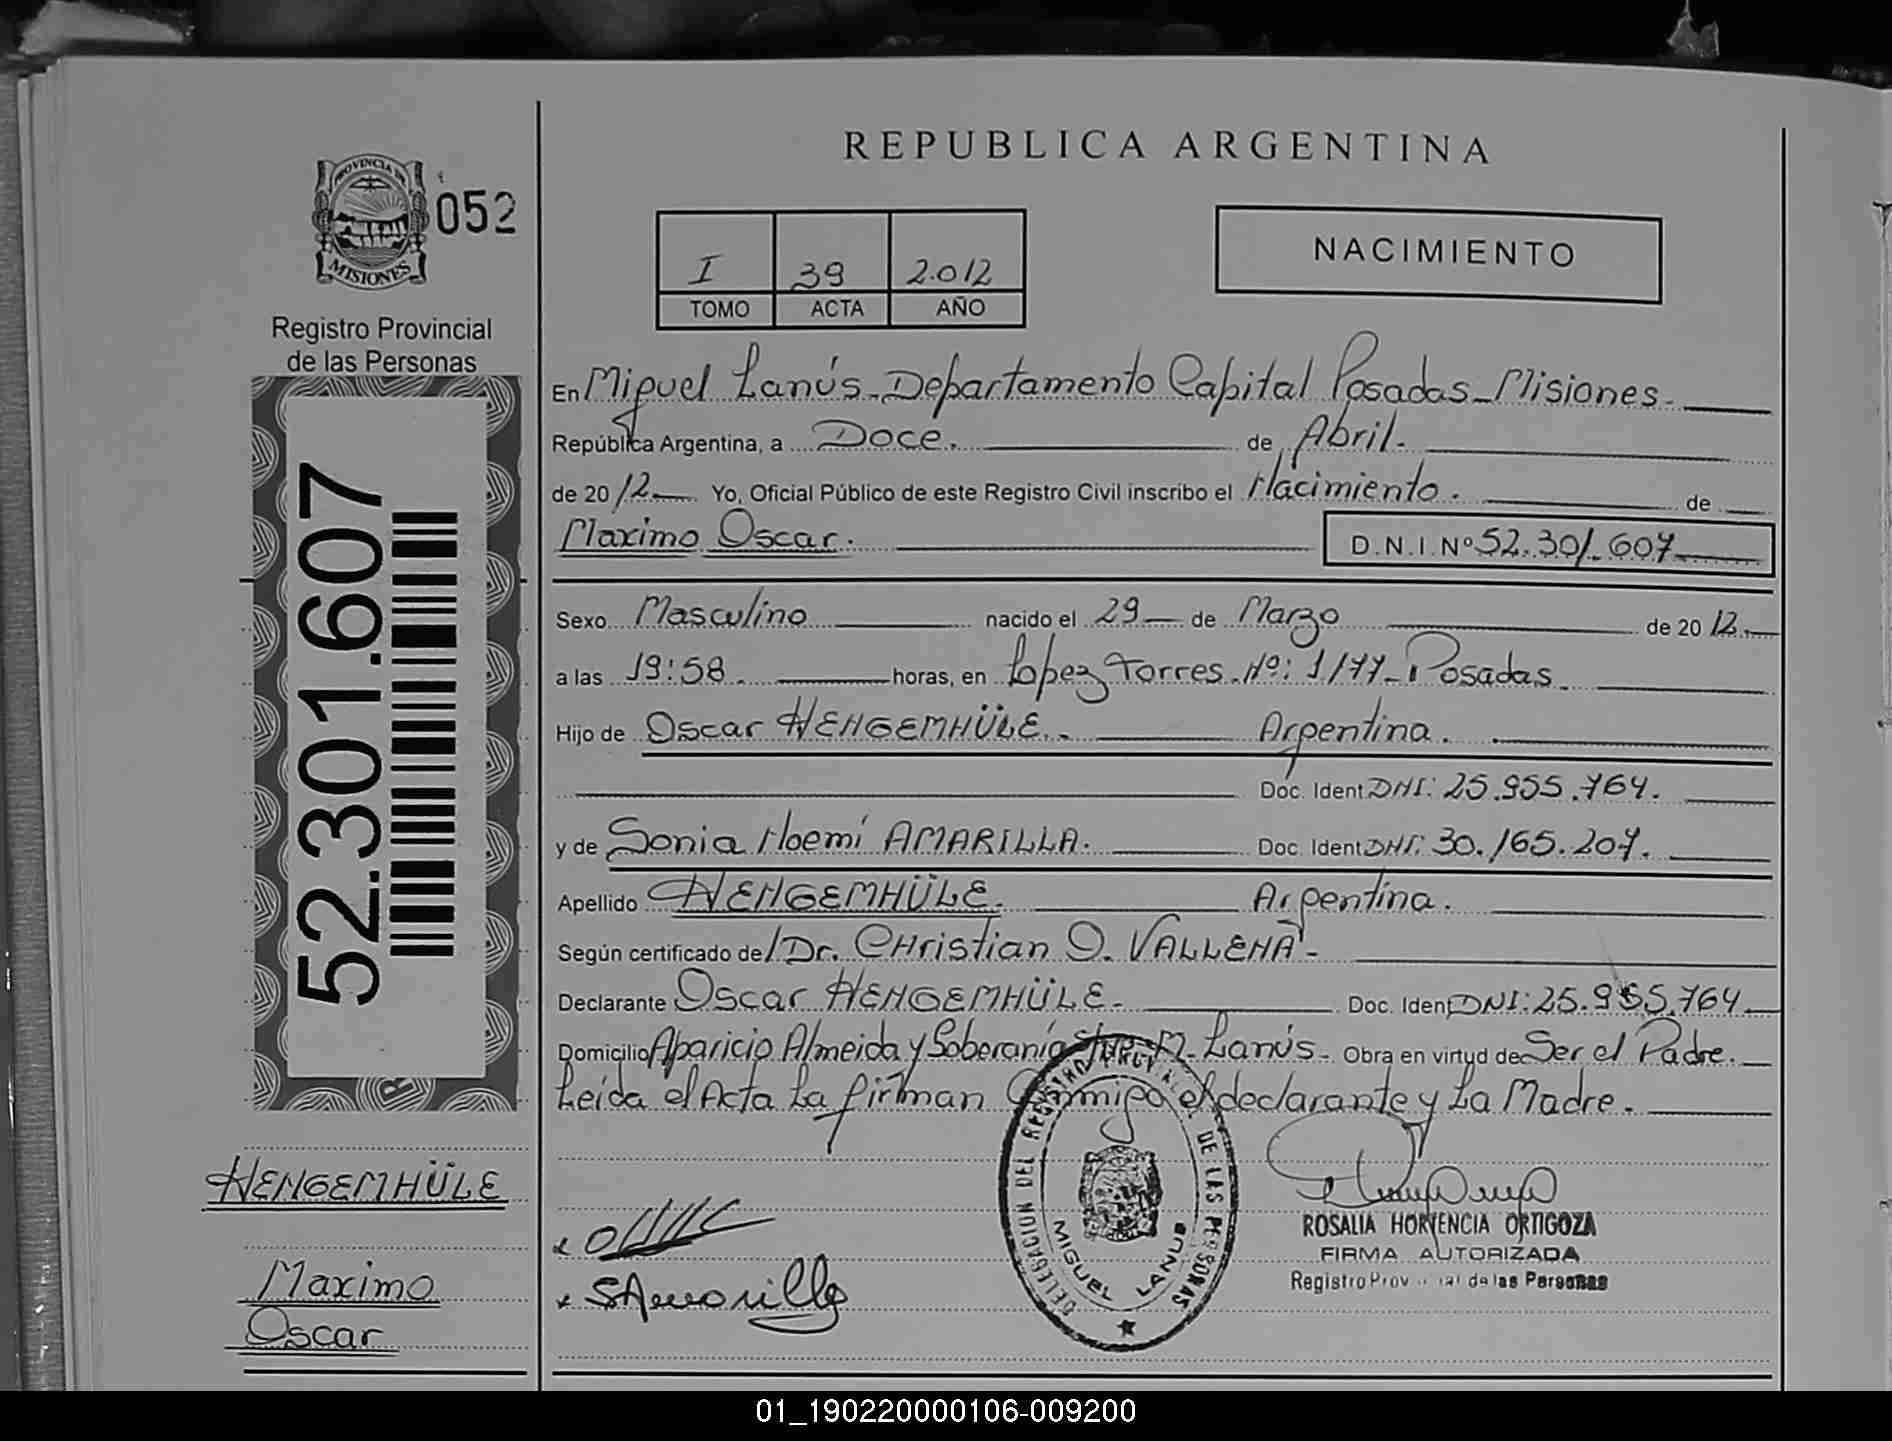 REPUBLICA ARGENTINA
PROVINCIA DE
MISIONES
052
Registro Provincial
de las Personas
52.301.607
I 39 2.012
TOMO ACTA AÑO
NACIMIENTO
En Miguel Lanús - Departamento Capital Posadas - Misiones -
República Argentina, a Doce. de Abril.
de 2012 Yo, Oficial Público de este Registro Civil inscribo el Nacimiento. de
Maximo Oscar. D.N.I. Nº 52.301.607
Sexo Masculino nacido el 29 de Marzo de 2012
a las 19:58. horas, en Lopez Torres Nº: 1177 - Posadas
Hijo de Oscar HENGEMHÜLE. Argentina.
Doc. Ident DNI: 25.955.764.
y de Sonia Noemí AMARILLA. Doc. Ident DNI: 30.165.207.
Apellido HENGEMHÜLE. Argentina.
Según certificado de l Dr. Christian O. VALLENA -
Declarante Oscar HENGEMHÜLE. Doc. Ident DNI: 25.955.764
Domicilio Aparicio Almeida y Soberanía M. Lanús - Obra en virtud de Ser el Padre.
Leída el Acta La firman Conmigo el declarante y La Madre.
HENGEMHÜLE
Maximo
Oscar
SAmarilla
DELEGACION DEL REGISTRO DE LAS PERSONAS
MIGUEL LANUS
ROSALIA HORTENCIA ORTIGOZA
FIRMA AUTORIZADA
Registro Provincial de las Personas
01_190220000106-009200